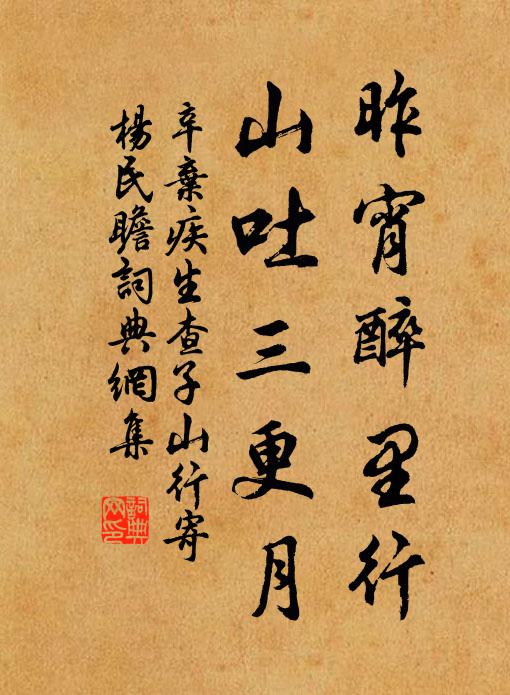 昨宵醉里行
山吐三更月
辛棄疾生查子山行寄
楊民瞻詞典網集
詞典
网印